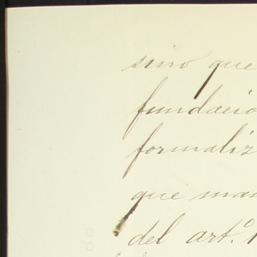 sino que
fundacio
formaliz
que man
del art.º